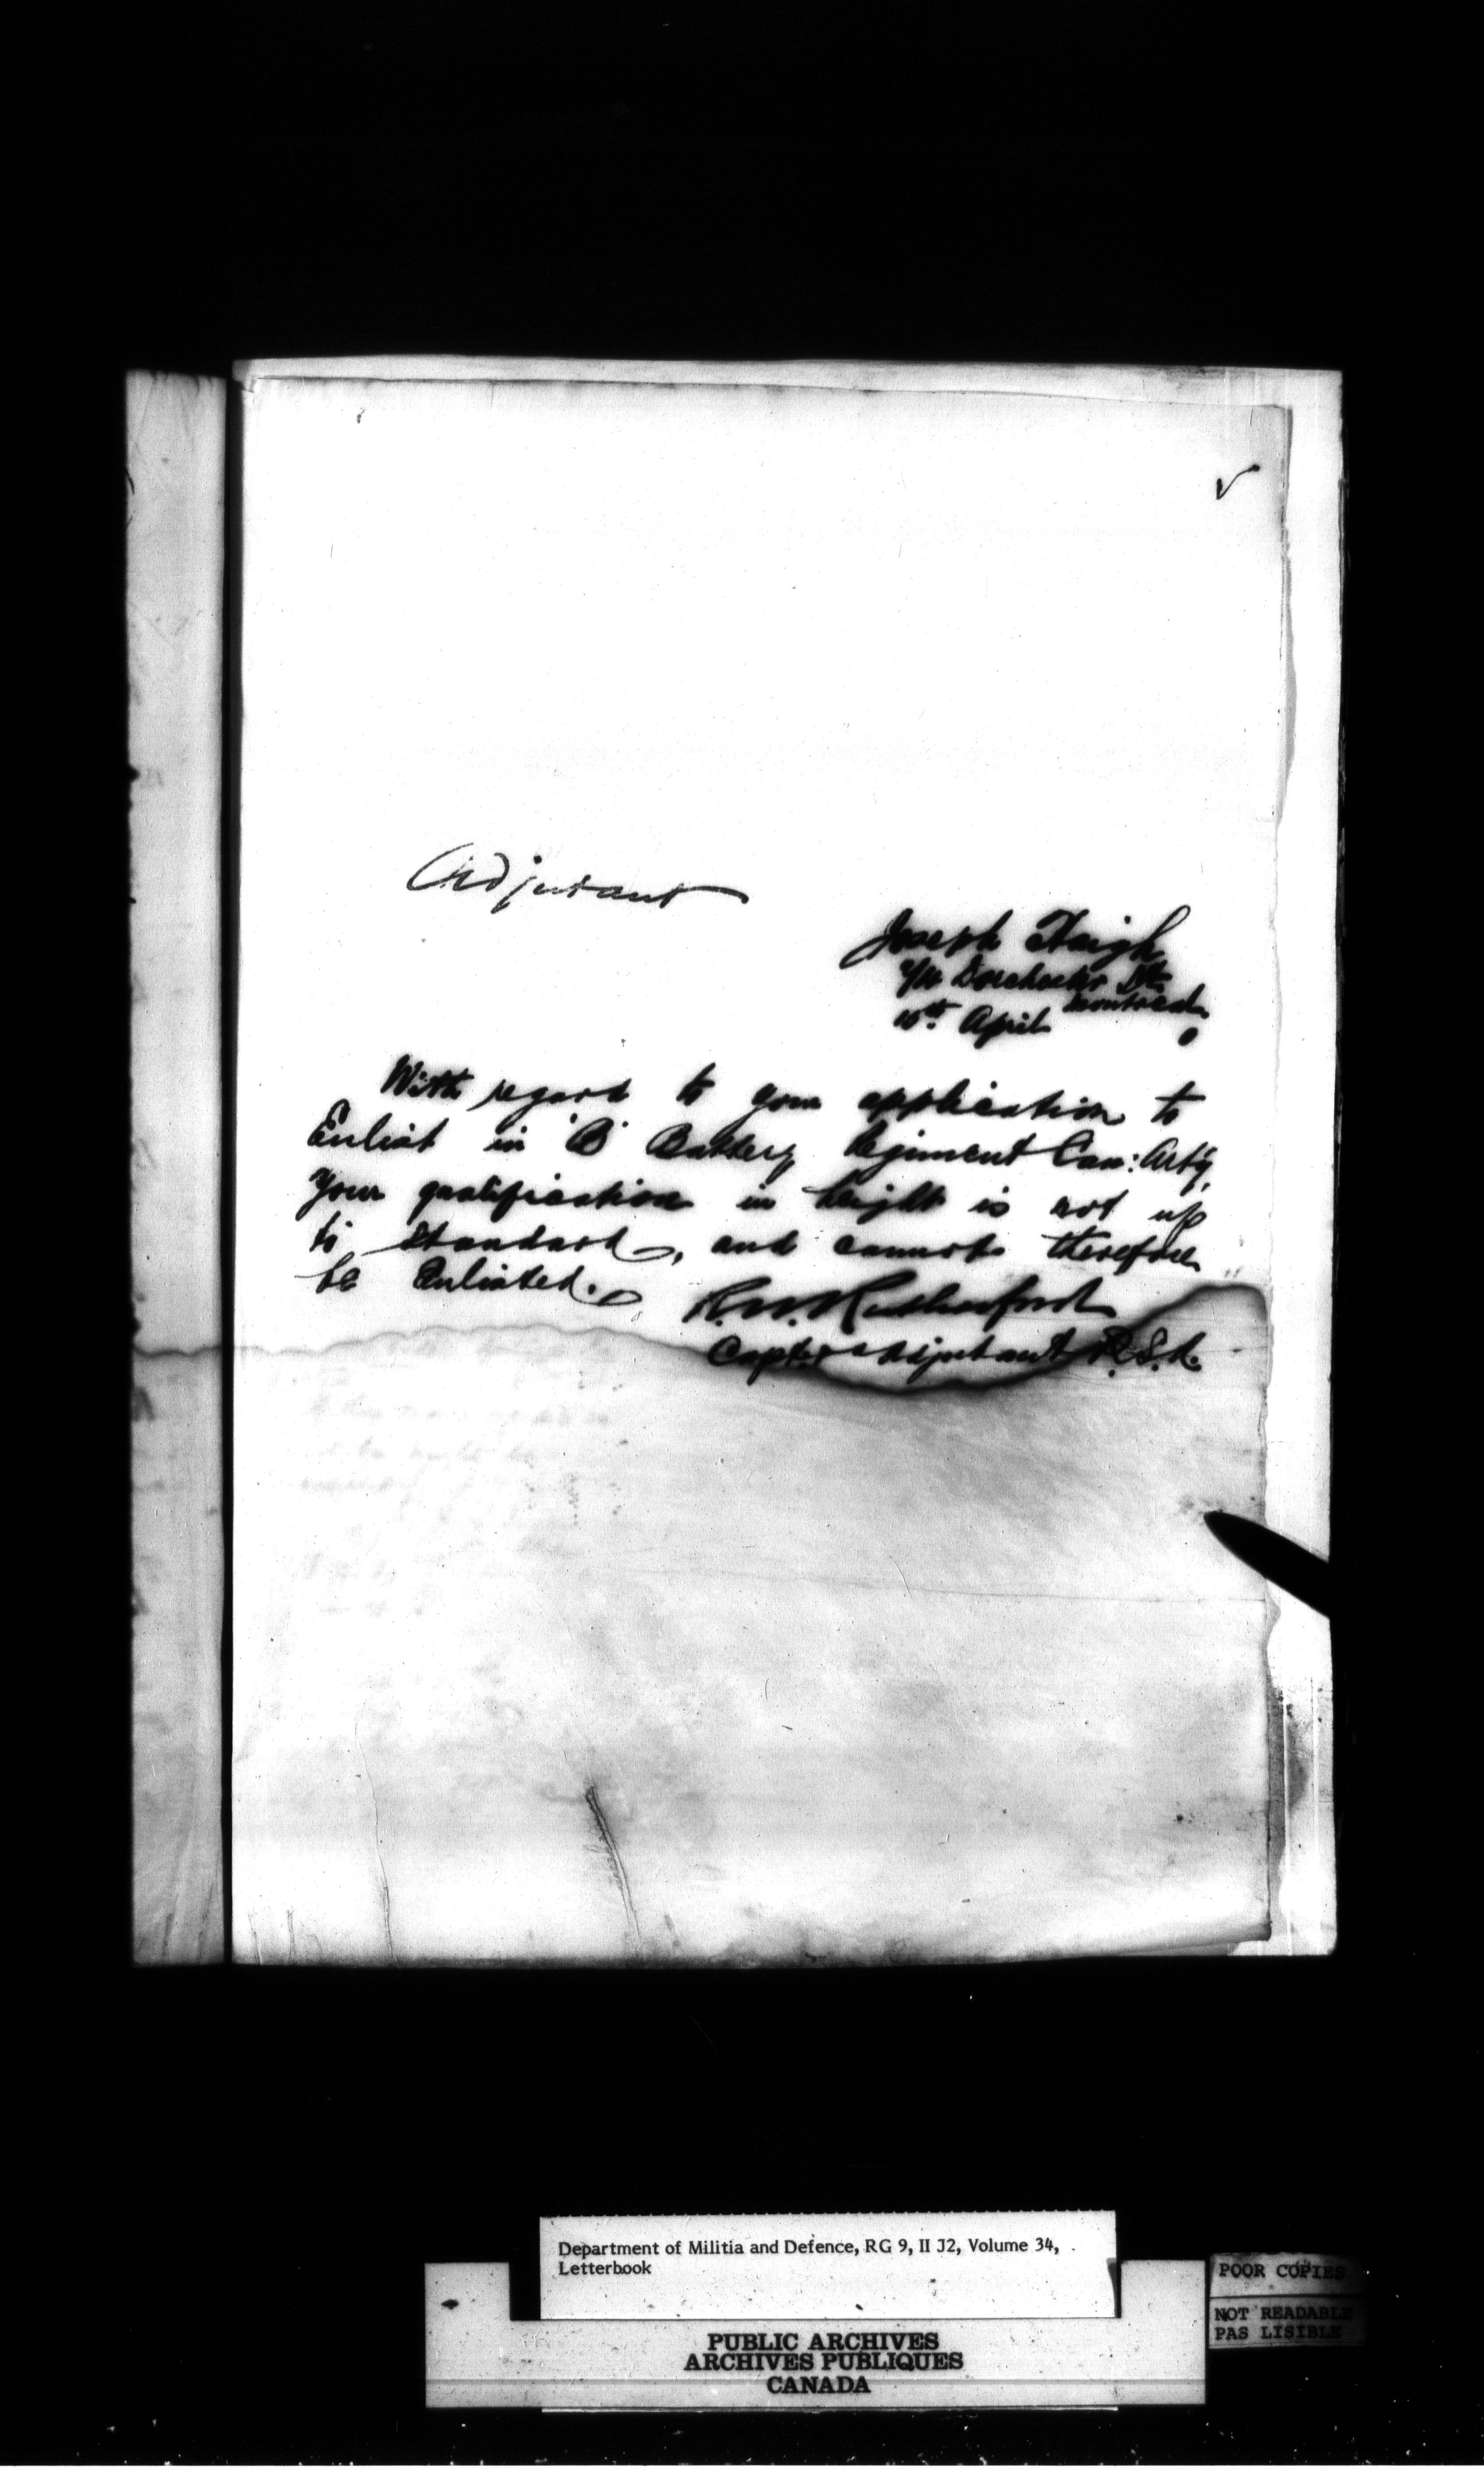 ✓
Adjutant
Joseph Haigh
Dorchester St.
Montreal
10th April
With regard to your application to
Enlist in 'B' Battery Regiment Can: Arty,
your qualification in height is not up
to standard, and cannot therefore
be Enlisted.
R.W. Rutherford
Capt. Adjutant R.S.A.
Department of Militia and Defence, RG 9, II J2, Volume 34,
Letterbook
PUBLIC ARCHIVES
ARCHIVES PUBLIQUES
CANADA
POOR COPIES
NOT READABLE
PAS LISIBLE